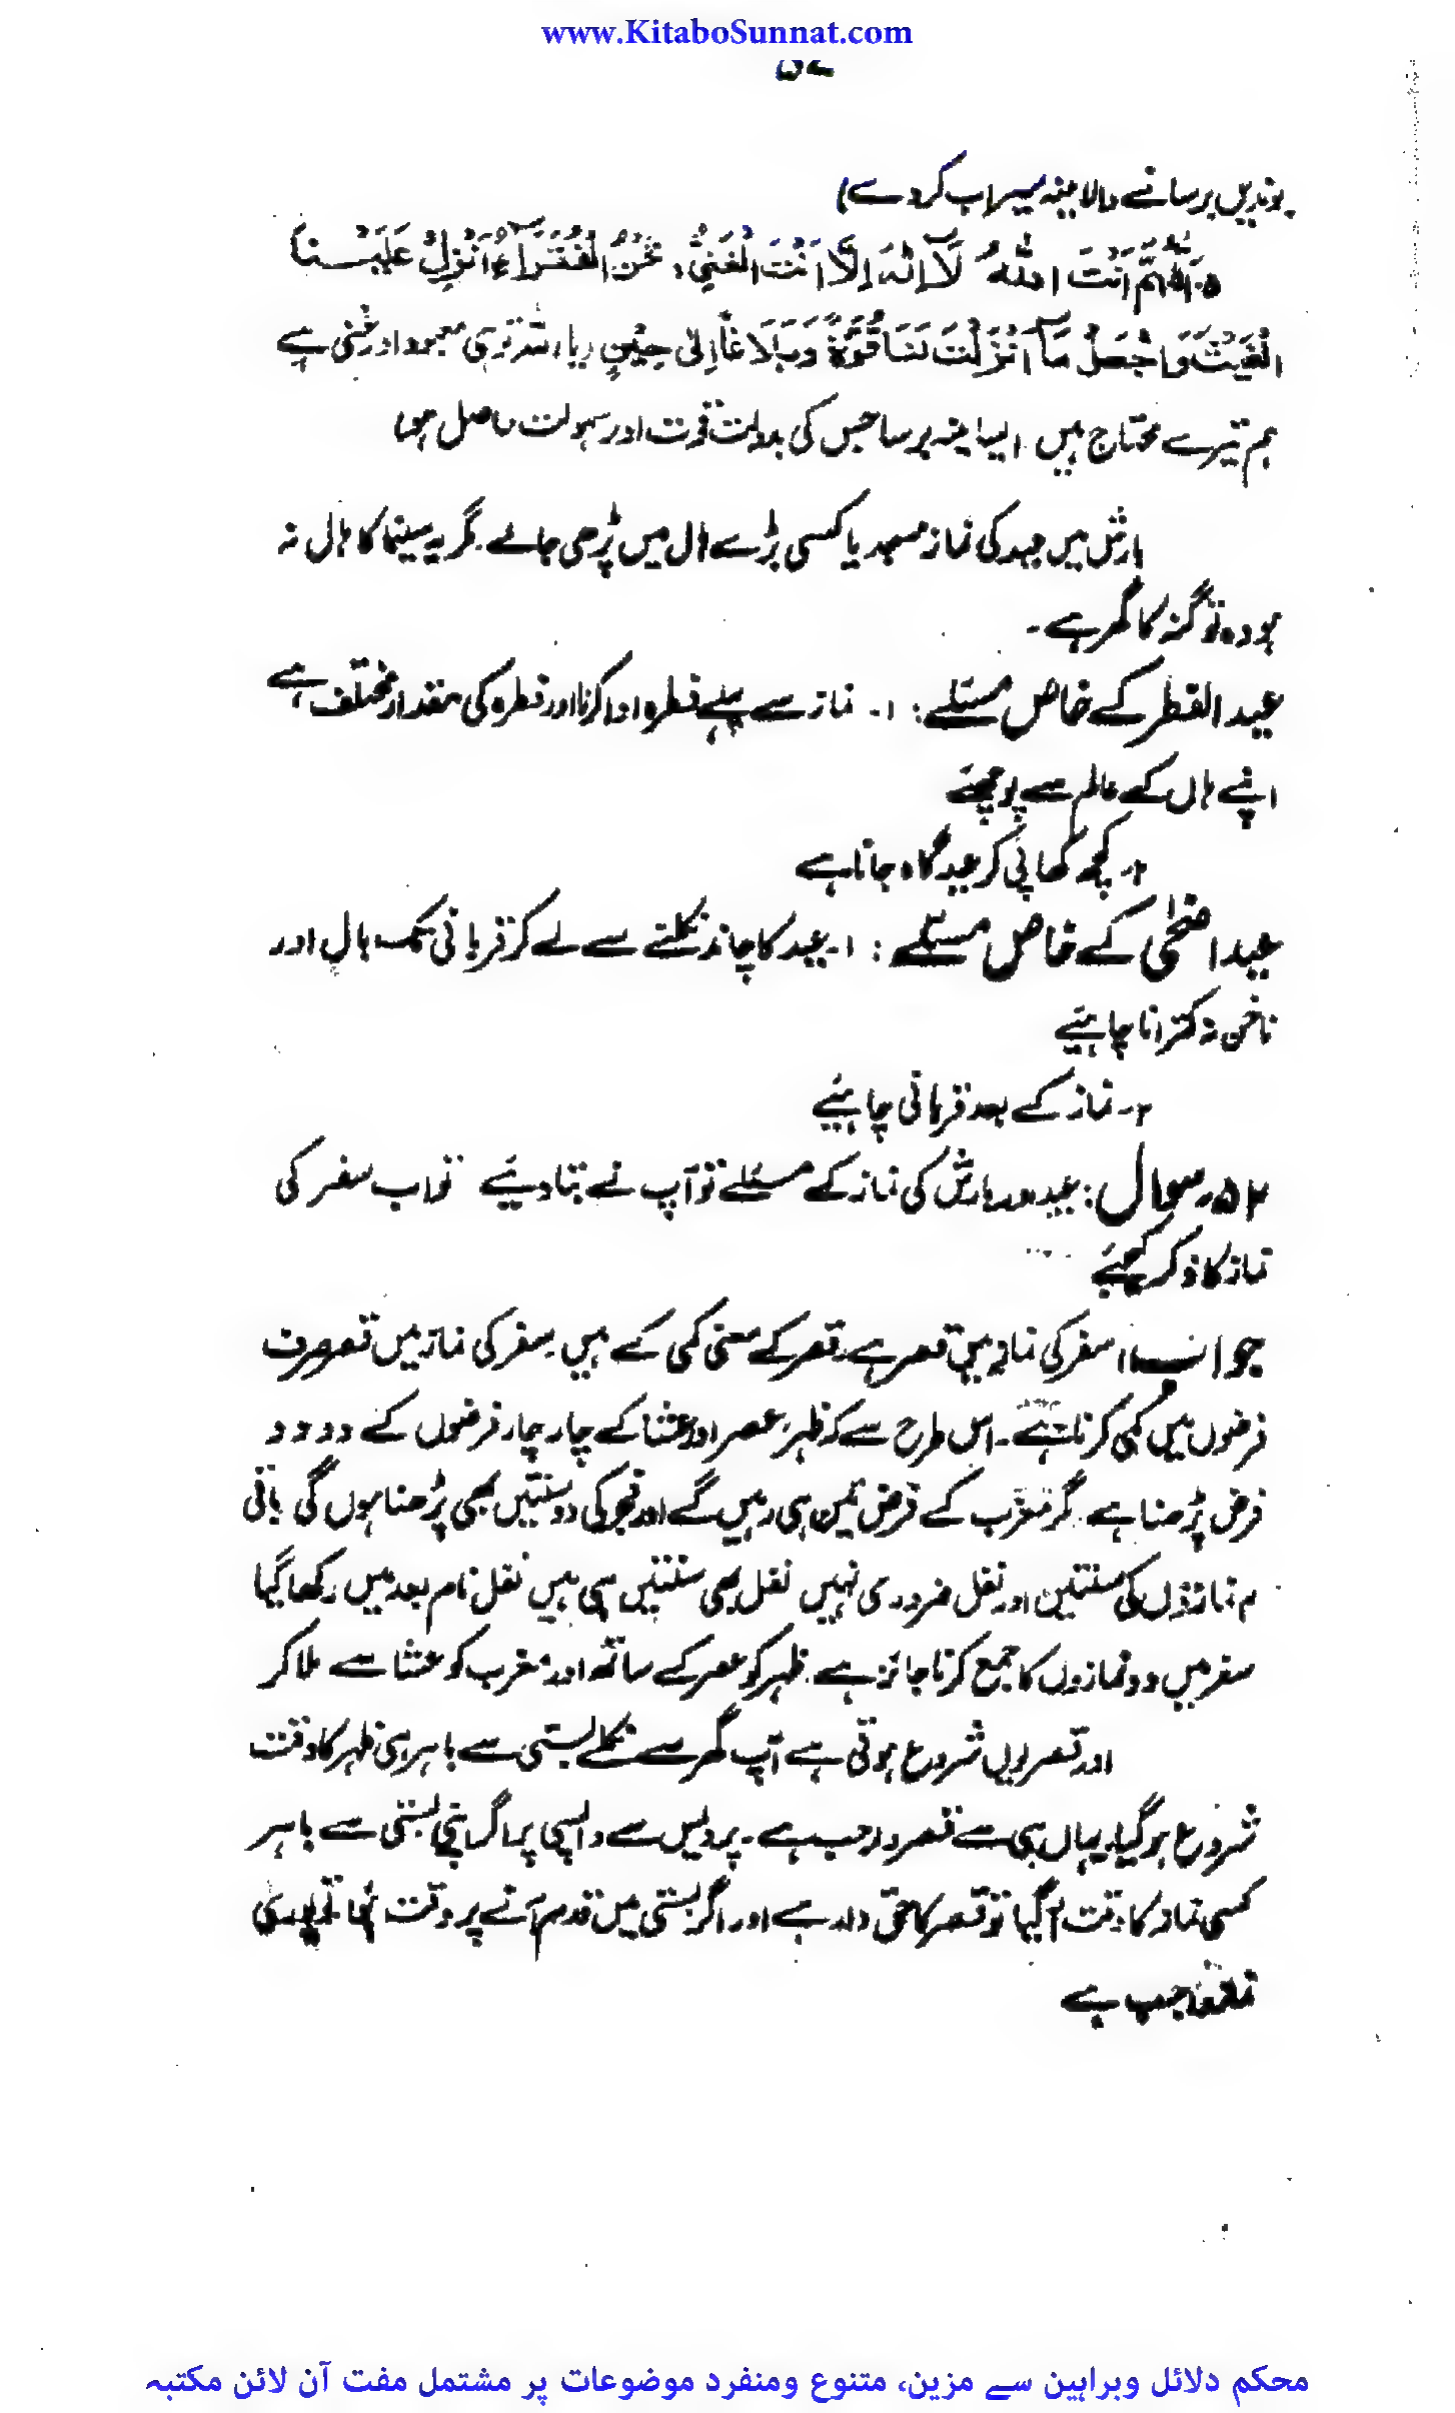 www.KitaboSunnat.com
بوندیں برسانے والا مینہ سیراب کر دے)
اَللّٰهُمَّ اَنْتَ اللّٰهُ لَآ اِلٰهَ اِلَّا اَنْتَ الْغَنِیُّ، نَحْنُ الْفُقَرَآءُ اَنْزِلْ عَلَیْنَا
الْغَیْثَ وَاجْعَلْ مَآ اَنْزَلْتَ لَنَا قُوَّةً وَبَلَاغًا اِلٰی حِیْنٍ (یا اللہ تو ہی معبود اور غنی ہے
ہم تیرے محتاج ہیں ایسا مینہ برسا جس کی بدولت قوت اور سہولت حاصل ہو)
بارش میں عید کی نماز مسجد یا کسی بڑے ہال میں پڑھی جائے۔ مگر یہ سینما کا ہال نہ
ہو وہ تو گنہ کا گھر ہے۔
عید الفطر کے خاص مسئلے: ۱۔ نماز سے پہلے فطرہ ادا کرنا اور فطرہ کی مقدار مختلف ہے
اپنے ہاں کے عالم سے پوچھئے
۲۔ کچھ کھا پی کر عید گاہ جانا ہے
عید اضحٰی کے خاص مسئلے: ۱۔ عید کا چاند نکلنے سے لے کر قربانی تک بال اور
ناخن نہ کترانا چاہیئے
۲۔ نماز کے بعد قربانی چاہیئے
۵۲۔ سوال: عید اور بارش کی نماز کے مسئلے تو آپ نے بتا دیئے تو اب سفر کی
نماز کا ذکر کیجئے
جواب: سفر کی نماز میں قصر ہے۔ قصر کے معنی کمی کے ہیں۔ سفر کی نماز میں قصر صرف
فرضوں میں کمی کرنا ہے۔ اس طرح سے کہ ظہر، عصر اور عشا کے چار چار فرضوں کے دو دو
فرض پڑھنا ہے۔ مگر مغرب کے فرض تین ہی رہیں گے اور فجر کی دو سنتیں بھی پڑھنا ہوں گی باقی
م نمازوں کی سنتیں اور نفل ضروری نہیں نفل بھی سنتیں ہی ہیں نفل نام بعد میں رکھا گیا
سفر میں دو نمازوں کا جمع کرنا جائز ہے۔ ظہر کو عصر کے ساتھ اور مغرب کو عشا سے ملا کر
اور قصر یوں شروع ہوتی ہے آپ گھر سے نکلے بستی سے باہر ہی ظہر کا وقت
شروع ہو گیا۔ یہاں ہی سے قصر واجب ہے۔ پردیس سے واپسی پر اگر اپنی بستی سے باہر
کسی نماز کا وقت آ گیا تو قصر کا حق دار ہے اور اگر بستی میں قدم آنے پر وقت تھا تو پوری
نماز واجب ہے
محکم دلائل وبراہین سے مزین، متنوع ومنفرد موضوعات پر مشتمل مفت آن لائن مکتبہ